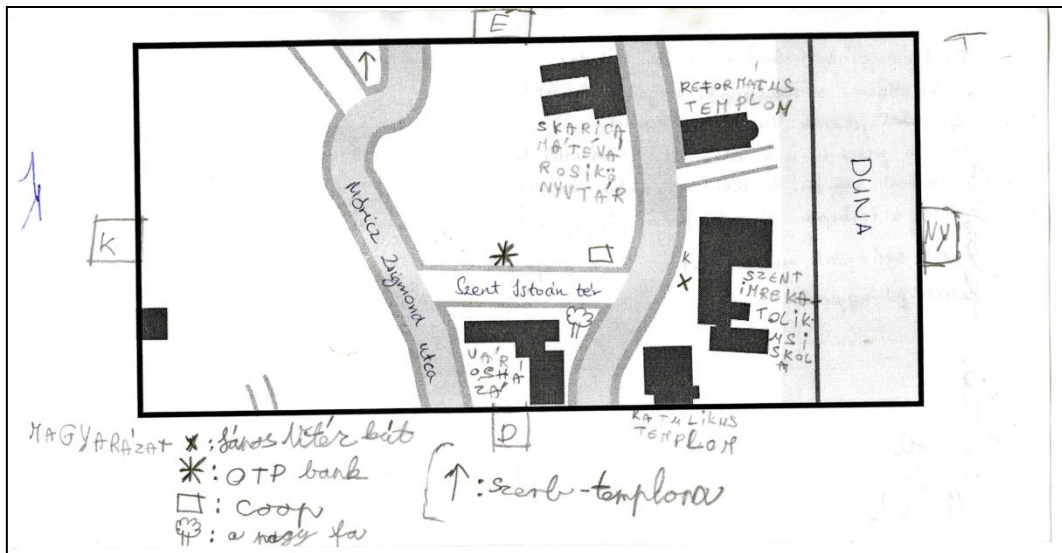 É
REFORMÁTUS
TEMPLOM
SKARICA
MÁTÉVÁ
ROSIKÖ
NYVTÁR
DUNA
Móricz Zsigmond utca
K
NY
K
Szent István tér
SZENT
IMREKA
TOLIK
USI
SKOL
A
VÁR
OSHÁ
ZA
KATOLIKUS
TEMPLOM
D
MAGYARÁZAT x: János vitéz kút
: OTP bank
: coop
: a nagy fa
↑: szerb-templom